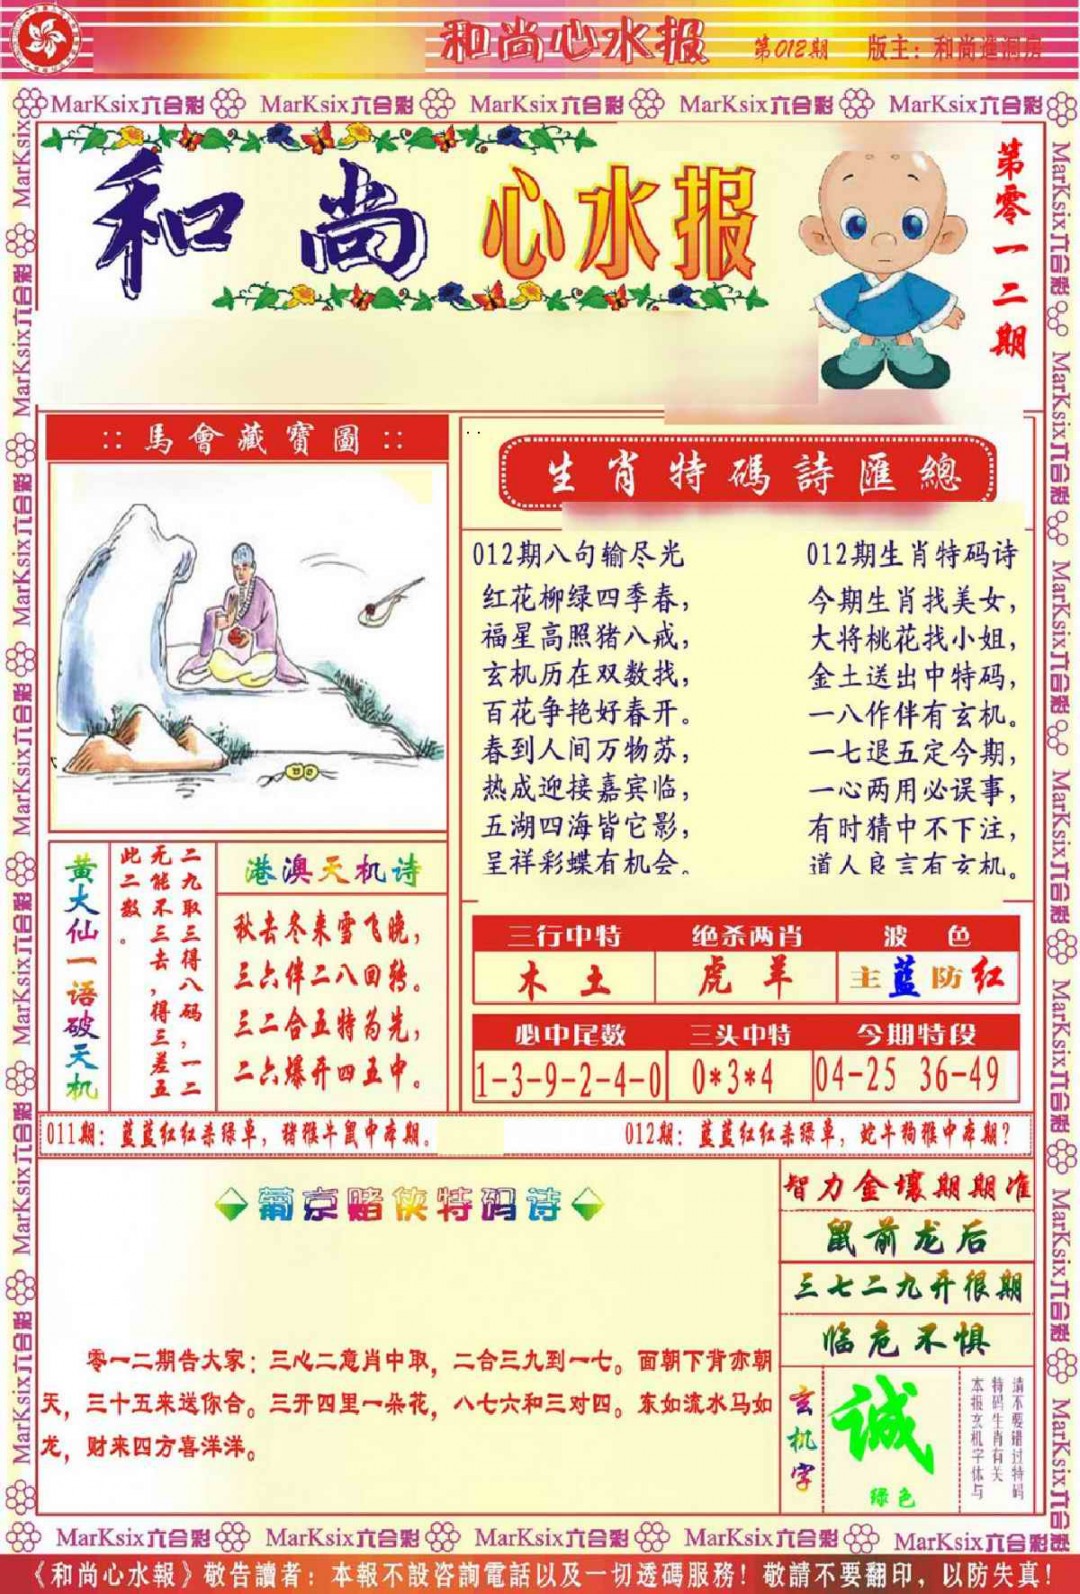 和尚心水报 第012期 版主：和尚進洞房
MarKsix六合彩 MarKsix六合彩 MarKsix六合彩 MarKsix六合彩 MarKsix六合彩
和尚 心水报
第零一二期
::馬會藏寶圖::
生肖特碼詩匯總
012期八句输尽光
红花柳绿四季春，
福星高照猪八戒，
玄机历在双数找，
百花争艳好春开。
春到人间万物苏，
热成迎接嘉宾临，
五湖四海皆它影，
呈祥彩蝶有机会。
012期生肖特码诗
今期生肖找美女，
大将桃花找小姐，
金土送出中特码，
一八作伴有玄机。
一七退五定今期，
一心两用必误事，
有时猜中不下注，
道人良言有玄机。
黄大仙一语破天机
二九取三得八码，一二
无能不三去，得三差五
此二数。
港澳天机诗
秋去冬来雪飞晚，
三六伴二八回转。
三二合五特为先，
二六爆开四五中。
三行中特 绝杀两肖 波色
木土 虎羊 主蓝防红
必中尾数 三头中特 今期特段
1-3-9-2-4-0 0*3*4 04-25 36-49
011期：蓝蓝红红杀绿单，猪猴牛鼠中本期。
012期：蓝蓝红红杀绿单，蛇牛狗猴中本期？
葡京赌侠特码诗
零一二期告大家：三心二意肖中取，二合三九到一七。面朝下背亦朝
天，三十五来送你合。三开四里一朵花，八七六和三对四。东如流水马如
龙，财来四方喜洋洋。
智力金壤期期准
鼠前龙后
三七二九开很期
临危不惧
玄机字
诚
绿色
请不要错过特码
特码生肖有关
本报玄机字体与
MarKsix六合彩 MarKsix六合彩 MarKsix六合彩 MarKsix六合彩 MarKsix六合彩
《和尚心水報》敬告讀者：本報不設咨詢電話以及一切透碼服務！敬請不要翻印，以防失真！